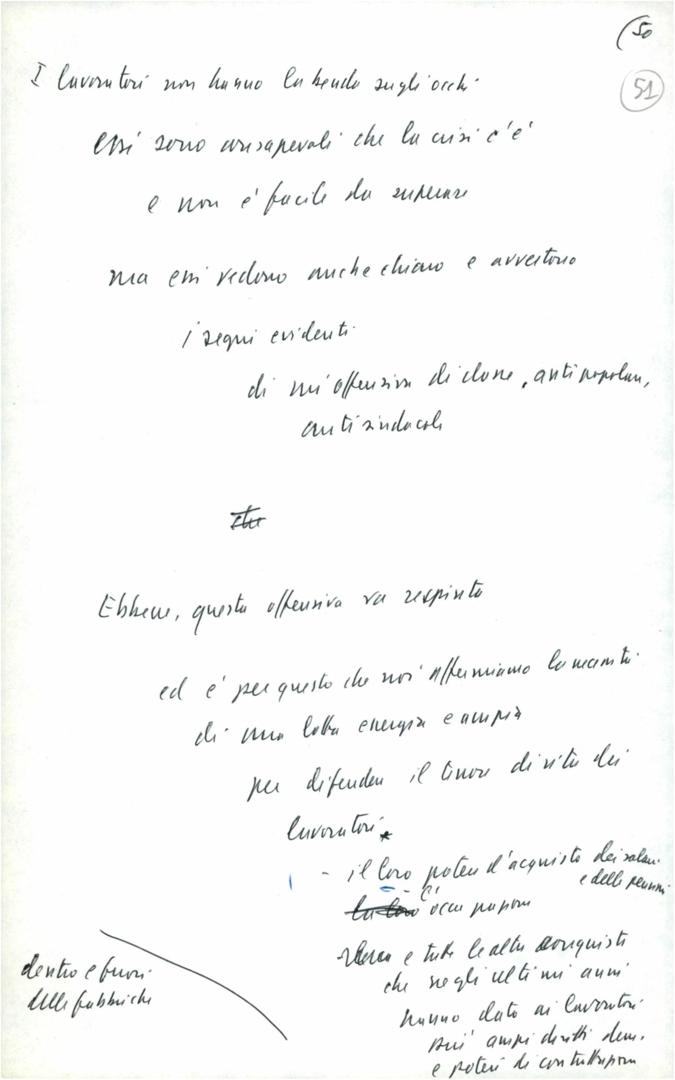 (50
51
I lavoratori non hanno la benda sugli occhi
essi sono consapevoli che la crisi c'è
e non è facile da superare
ma essi vedono anche chiaro e avvertono
i segni evidenti
di un'offensiva di classe, antipopolare,
antisindacale
Ebbene, questa offensiva va respinta
ed è per questo che noi affermiamo la necessità
di una lotta energica e ampia
per difendere il tenore di vita dei
lavoratori
- il loro potere d'acquisto dei salari
e delle pensioni
l'occupazione
e tutte le altre conquiste
che negli ultimi anni
hanno dato ai lavoratori
più ampi diritti dem.
e poteri di contrattazione
dentro e fuori
delle fabbriche